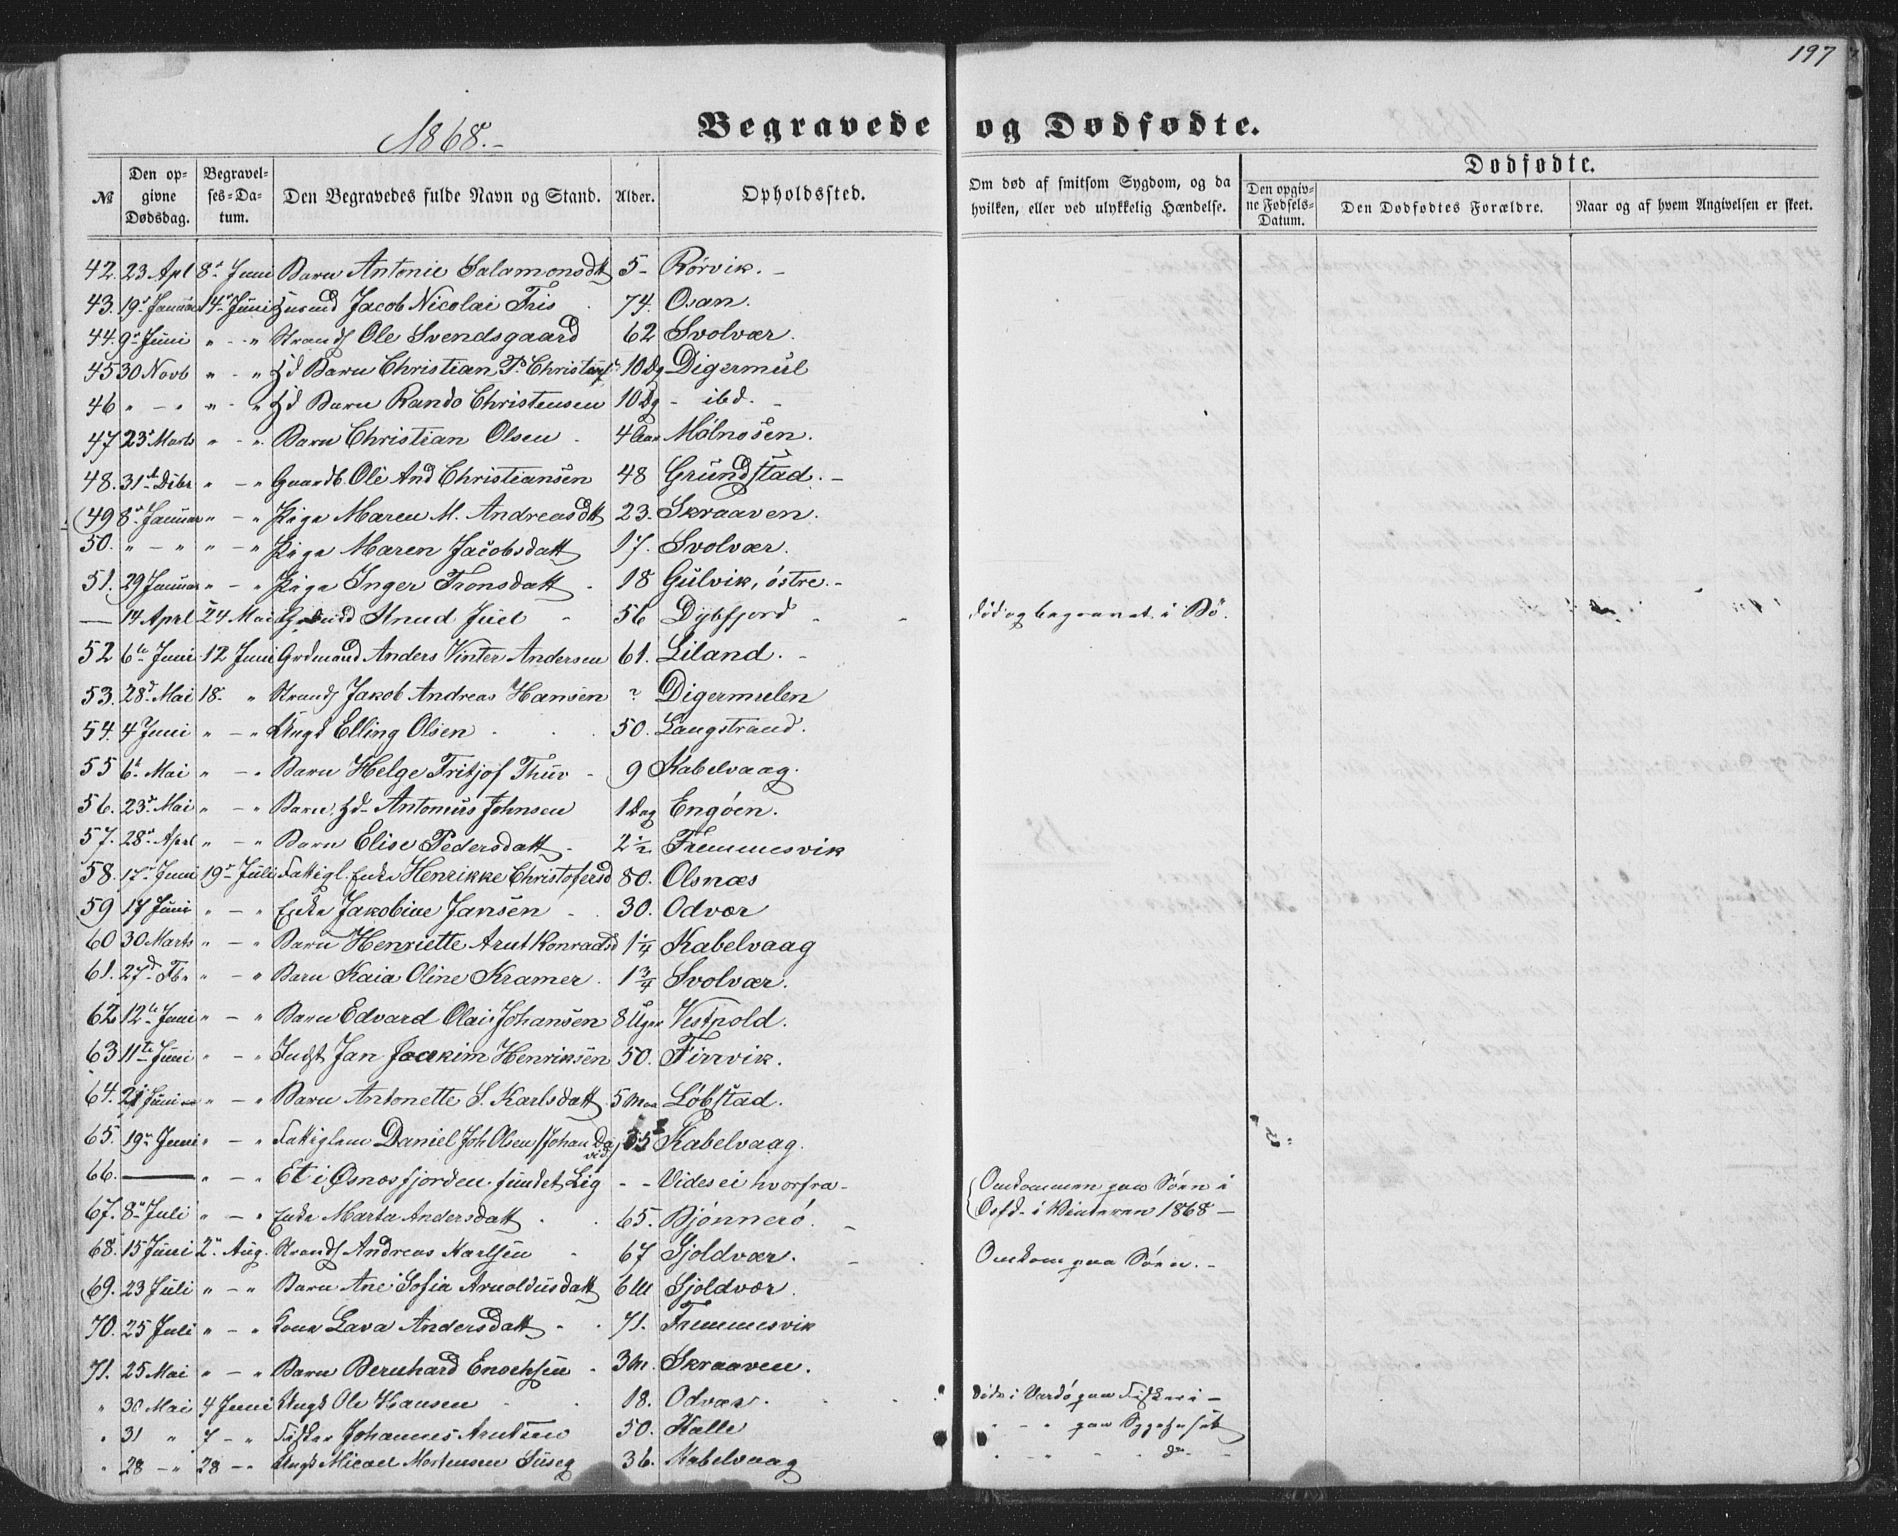 197
1868.-
Begravede og Dødfødte.
№
Den opgivne Dødsdag.
Begravelses-Datum.
Den Begravedes fulde Navn og Stand.
Alder.
Opholdssted.
Om død af smitsom Sygdom, og da hvilken, eller ved ulykkelig Hændelse.
Dødfødte.
Den opgivne Fødsels-Datum.
Den Dødfødtes Forældre.
Naar og af hvem Angivelsen er skeet.
42. 23 Apl 8de Juni Barn Antonie Salamonsdtt 5- Rørvik. -
43. 19de Januar 14de Juni Husmd Jacob Nicolai Friis 74. Osan.
44. 9de Juni " - " Strands Ole Svendsgaard 62 Svolvær.
45 30 Novb " - " Hd Barn Christian P. Christens 10 Dg Digermul
46 " - " " - " Hd Barn Rando Christensen 10 Dg - ibd. -
47 23de Marts " - " Barn Christian Olsen - 4 Aar Mølnosen.
48. 31te Dcbr " - " Gaardb. Ole And Christiansen 48 Grundstad. -
49 8de Januar " - " Pige Maren M. Andreasdtt 23. Skraaven.
50. " - " " - " Pige Maren Jacobsdatt 17. Svolvær.
51. 29 Januar " - " Pige Inger Tronsdatt - 18 Gulvik, østre. -
— 14 Aprl 24 Mai Knud Juel - 56 Dybfjord - død og begravet i Bø.
52 6te Juni 12 Juni Grdmand Anders Vinter Andersen 61. Liland. -
53. 28de Mai 18. " Strands Jakob Andreas Hansen ? Digermulen
54. 4 Juni " - " Ungk Elling Olsen - 50. Langstrand.
55 6te Mai " - " Barn Helge Fritjof Thuv - 9 Kabelvaag.
56. 23de Mai " - " Barn. Hd- Antonius Johnsen 1 Dag Engøen.
57. 28de Aprl " - " Barn Elise Pedersdatt - 2 1/2 Fremmesvik
58. 17de Juni 19de Juli Fattigl. Enke Henrikke Christofersd 80. Olsnæs
59 17 Juni " - " Enke Jakobine Jansen - 30. Odvær
60 30 Marts " - " Barn Henriette Arnt Konradsd 1 1/4 Kabelvaag
61. 27de Fbr " - " Barn Kaia Oline Kramer. 1 3/4 Svolvær.
62 12te Juni " - " Barn Edvard Olai Johansen 8 Uger Vestpold.
63 11te Juni " - " Indst Jan Joakim Henriksen 50. Firrvik.
64. 21 Juni " - " Barn Antonette S. Karlsdatt 5 Løbstad.
65. 19de Juni " - " Fattiglem Daniel Joh Olsen /Johan David/ 55 Kabelvaag.
66. — " - " Et i Øsnæsfjorden fundet Lig - - Vides ei hvorfra - Omkommen paa Søen i
67. 8de Juli " - " Enke Marta Andersdatt - 65. Bjønnerø. - Osfd. i Vinteren 1868 -
68. 15 Juni 2de Aug. Strands Andreas Karlsen - 67 Gjoldvær. - Omkom paa Søen. -
69. 23 Juli " - " Barn Ane Sofia Arnoldusdatt 6 M Gjoldvær.
70. 25 Juli " - " Kone Lava Andersdatt - - 71. Fremmesvik
71. 25 Mai " - " Barn Bernhard Enochsen - 3 M. Skraaven.
" 30 Mai 4 Juni Ungk Ole Hansen - 18. Odvær. - døde i Vardø paa Fiskeri -
" 31 " 7 - " Fisker Johannes Arntsen 50. Kalle " - " paa Sygehuset
" 28 - " 28 - " Ungk Micael Mortensen 36. Kabelvaag " - " - do -